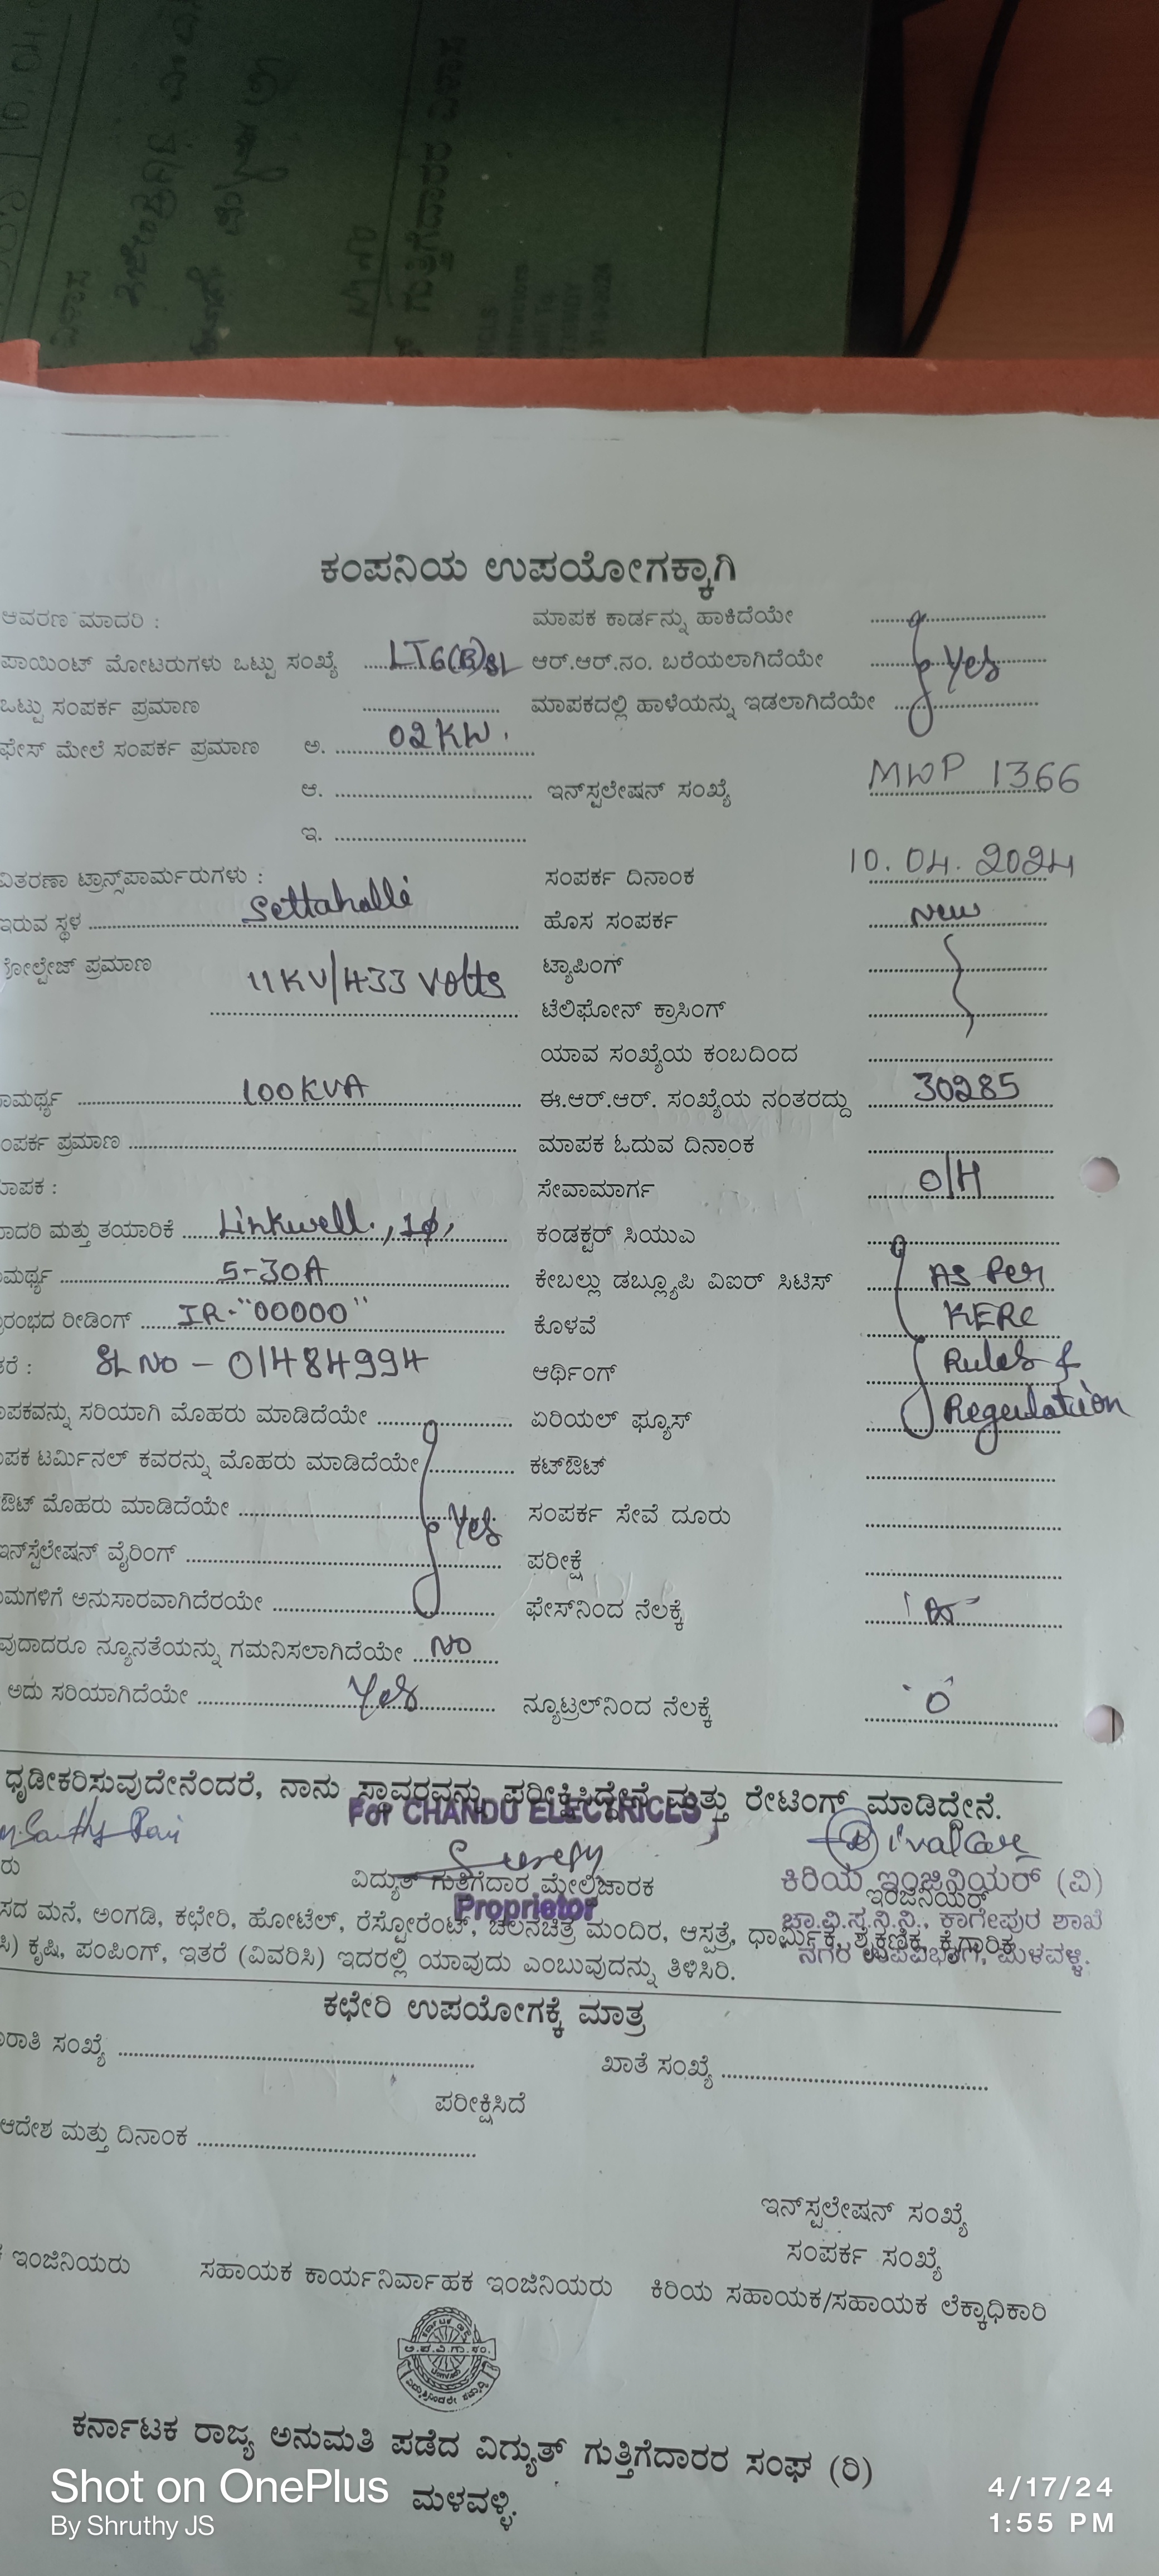 ಗುತ್ತಿಗೆದಾರರ ವಿಳಾಸ
ಕಂಪನಿಯ ಉಪಯೋಗಕ್ಕಾಗಿ
ಆವರಣ ಮಾದರಿ : ಮಾಪಕ ಕಾರ್ಡನ್ನು ಹಾಕಿದೆಯೇ
ಪಾಯಿಂಟ್ ಮೋಟರುಗಳು ಒಟ್ಟು ಸಂಖ್ಯೆ LT6(B)SL ಆರ್.ಆರ್.ನಂ. ಬರೆಯಲಾಗಿದೆಯೇ Yes
ಒಟ್ಟು ಸಂಪರ್ಕ ಪ್ರಮಾಣ ಮಾಪಕದಲ್ಲಿ ಹಾಳೆಯನ್ನು ಇಡಲಾಗಿದೆಯೇ
ಫೇಸ್ ಮೇಲೆ ಸಂಪರ್ಕ ಪ್ರಮಾಣ ಅ. 02KW.
ಆ. ಇನ್‌ಸ್ಟಲೇಷನ್ ಸಂಖ್ಯೆ MWP 1366
ಇ.
ವಿತರಣಾ ಟ್ರಾನ್ಸ್‌ಪಾರ್ಮರುಗಳು : ಸಂಪರ್ಕ ದಿನಾಂಕ 10.04.2024
ಇರುವ ಸ್ಥಳ Settahalli ಹೊಸ ಸಂಪರ್ಕ New
ವೋಲ್ಟೇಜ್ ಪ್ರಮಾಣ 11KV/433 Volts ಟ್ಯಾಪಿಂಗ್
ಟೆಲಿಫೋನ್ ಕ್ರಾಸಿಂಗ್
ಯಾವ ಸಂಖ್ಯೆಯ ಕಂಬದಿಂದ
ಾಮರ್ಥ್ಯ 100KVA ಈ.ಆರ್.ಆರ್. ಸಂಖ್ಯೆಯ ನಂತರದ್ದು 30285
ಂಪರ್ಕ ಪ್ರಮಾಣ ಮಾಪಕ ಓದುವ ದಿನಾಂಕ
ಾಪಕ : ಸೇವಾಮಾರ್ಗ O/H
ಾದರಿ ಮತ್ತು ತಯಾರಿಕೆ Linkwell., 1ϕ, ಕಂಡಕ್ಟರ್ ಸಿಯುಎ
ಮರ್ಥ್ಯ 5-30A ಕೇಬಲ್ಲು ಡಬ್ಲ್ಯೂಪಿ ವಿಐರ್ ಸಿಟಿಸ್ As Per
ರಂಭದ ರೀಡಿಂಗ್ IR-"00000" ಕೊಳವೆ KERC
ತರೆ : SL NO - 01484994 ಆರ್ಥಿಂಗ್ Rules &
ಾಪಕವನ್ನು ಸರಿಯಾಗಿ ಮೊಹರು ಮಾಡಿದೆಯೇ ಏರಿಯಲ್ ಫ್ಯೂಸ್ Regulation
ಾಪಕ ಟರ್ಮಿನಲ್ ಕವರನ್ನು ಮೊಹರು ಮಾಡಿದೆಯೇ ಕಟ್‌ಔಟ್
ಔಟ್ ಮೊಹರು ಮಾಡಿದೆಯೇ Yes ಸಂಪರ್ಕ ಸೇವೆ ದೂರು
ಇನ್‌ಸ್ಟೆಲೇಷನ್ ವೈರಿಂಗ್ ಪರೀಕ್ಷೆ
ಯಮಗಳಿಗೆ ಅನುಸಾರವಾಗಿದೆರಯೇ ಫೇಸ್‌ನಿಂದ ನೆಲಕ್ಕೆ
ವುದಾದರೂ ನ್ಯೂನತೆಯನ್ನು ಗಮನಿಸಲಾಗಿದೆಯೇ NO
ಅದು ಸರಿಯಾಗಿದೆಯೇ Yes ನ್ಯೂಟ್ರಲ್‌ನಿಂದ ನೆಲಕ್ಕೆ 0
ಧೃಡೀಕರಿಸುವುದೇನೆಂದರೆ, ನಾನು ಸ್ಥಾವರವನ್ನು ಪರೀಕ್ಷಿಸಿದ್ದೇನೆ ಮತ್ತು ರೇಟಿಂಗ್ ಮಾಡಿದ್ದೇನೆ.
For CHANDU ELECTRICES
ರು ವಿದ್ಯುತ್ ಗುತಿಗೆದಾರ ಮೇಲಿಚಾರಕ ಇಂಜಿನಿಯರ್
Proprietor
ಕಿರಿಯ ಇಂಜಿನಿಯರ್ (ವಿ)
ಚಾ.ವಿ.ಸ.ನಿ.ನಿ., ಕಾಗೇಪುರ ಶಾಖೆ
ನಗರ ಉಪವಿಭಾಗ, ಮಳವಳ್ಳಿ.
ಸದ ಮನೆ, ಅಂಗಡಿ, ಕಛೇರಿ, ಹೋಟೆಲ್, ರೆಸ್ಟೋರೆಂಟ್, ಚಲನಚಿತ್ರ ಮಂದಿರ, ಆಸ್ಪತ್ರೆ, ಧಾರ್ಮಿಕ, ಶೈಕ್ಷಣಿಕ, ಕೈಗಾರಿಕ
ಸಿ) ಕೃಷಿ, ಪಂಪಿಂಗ್, ಇತರೆ (ವಿವರಿಸಿ) ಇದರಲ್ಲಿ ಯಾವುದು ಎಂಬುವುದನ್ನು ತಿಳಿಸಿರಿ.
ಕಛೇರಿ ಉಪಯೋಗಕ್ಕೆ ಮಾತ್ರ
ರಾತಿ ಸಂಖ್ಯೆ ಖಾತೆ ಸಂಖ್ಯೆ
ಪರೀಕ್ಷಿಸಿದೆ
ಆದೇಶ ಮತ್ತು ದಿನಾಂಕ
ಇನ್‌ಸ್ಟಲೇಷನ್ ಸಂಖ್ಯೆ
ಸಂಪರ್ಕ ಸಂಖ್ಯೆ
ಕ ಇಂಜಿನಿಯರು ಸಹಾಯಕ ಕಾರ್ಯನಿರ್ವಾಹಕ ಇಂಜಿನಿಯರು ಕಿರಿಯ ಸಹಾಯಕ/ಸಹಾಯಕ ಲೆಕ್ಕಾಧಿಕಾರಿ
ಕರ್ನಾಟಕ ರಾಜ್ಯ ಅನುಮತಿ ಪಡೆದ ವಿದ್ಯುತ್ ಗುತ್ತಿಗೆದಾರರ ಸಂಘ (ರಿ)
ಮಳವಳ್ಳಿ.
Shot on OnePlus
By Shruthy JS
4/17/24
1:55 PM